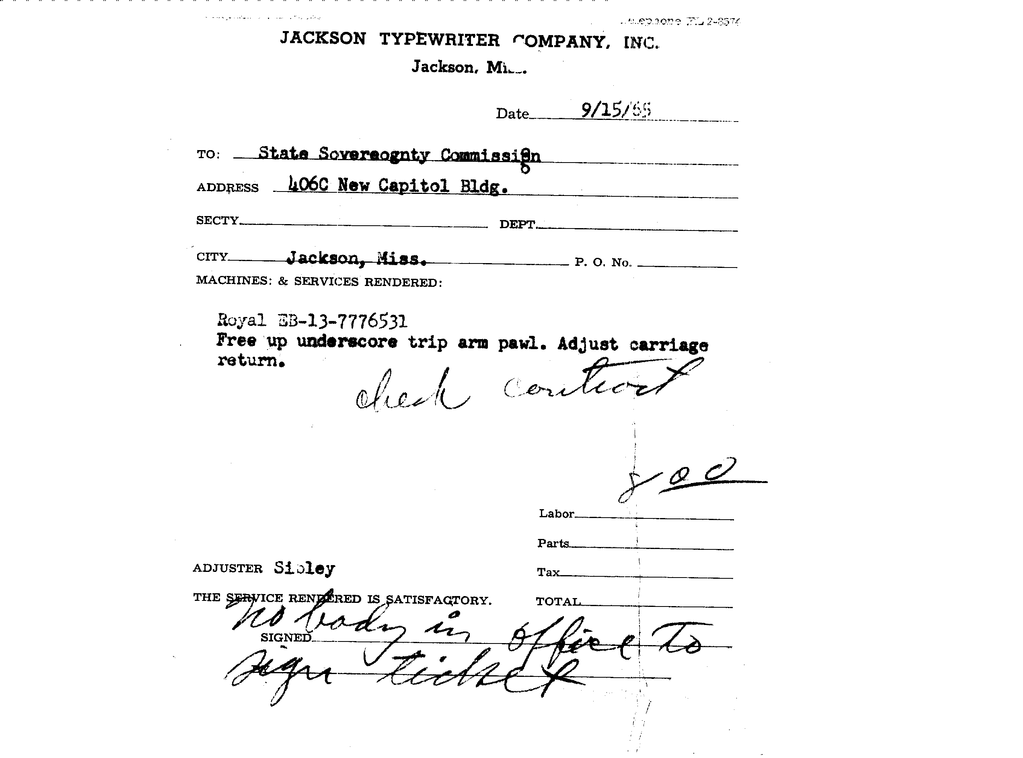 JACKSON TYPEWRITER COMPANY, INC.
Jackson,
Date 9/15/65
TO: State Sovereognty Commission
ADDRESS 406C New Capitol Bldg.
SECTY. DEPT.
CITY Jackson, Miss. P. O. No.
MACHINES: & SERVICES RENDERED:
Royal EB-13-7776531
Free up underscore trip arm pawl. Adjust carriage
return.
check contract
8 00
Labor
Parts
ADJUSTER Sibley Tax
THE SERVICE RENDERED IS SATISFACTORY. TOTAL
SIGNED No body in office To
sign ticket